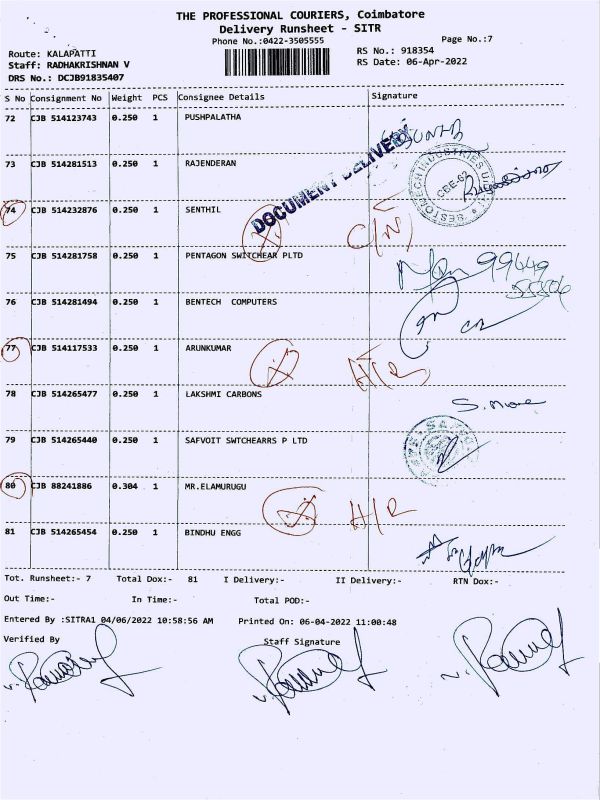 THE PROFESSIONAL COURIERS, Coimbatore
Delivery Runsheet - SITR
Phone No.:0422-3505555
Page No.:7
Route: KALAPATTI
RS No.: 918354
Staff: RADHAKRISHNAN V
RS Date: 06-Apr-2022
DRS No.: DCJB91835407
S No Consignment No Weight PCS Consignee Details Signature
72 CJB 514123743 0.250 1 PUSHPALATHA
DOCUMENT DELIVERY
73 CJB 514281513 0.250 1 RAJENDERAN
BESTOMECH INDUSTRIES CBE-62
74 CJB 514232876 0.250 1 SENTHIL
75 CJB 514281758 0.250 1 PENTAGON SWITCHEAR PLTD
99449
76 CJB 514281494 0.250 1 BENTECH COMPUTERS
77 CJB 514117533 0.250 1 ARUNKUMAR H/R
78 CJB 514265477 0.250 1 LAKSHMI CARBONS
79 CJB 514265440 0.250 1 SAFVOIT SWTCHEARRS P LTD
80 CJB 88241886 0.304 1 MR.ELAMURUGU H/R
81 CJB 514265454 0.250 1 BINDHU ENGG
Tot. Runsheet:- 7 Total Dox:- 81 I Delivery:- II Delivery:- RTN Dox:-
Out Time:- In Time:- Total POD:-
Entered By :SITRA1 04/06/2022 10:58:56 AM Printed On: 06-04-2022 11:00:48
Verified By Staff Signature